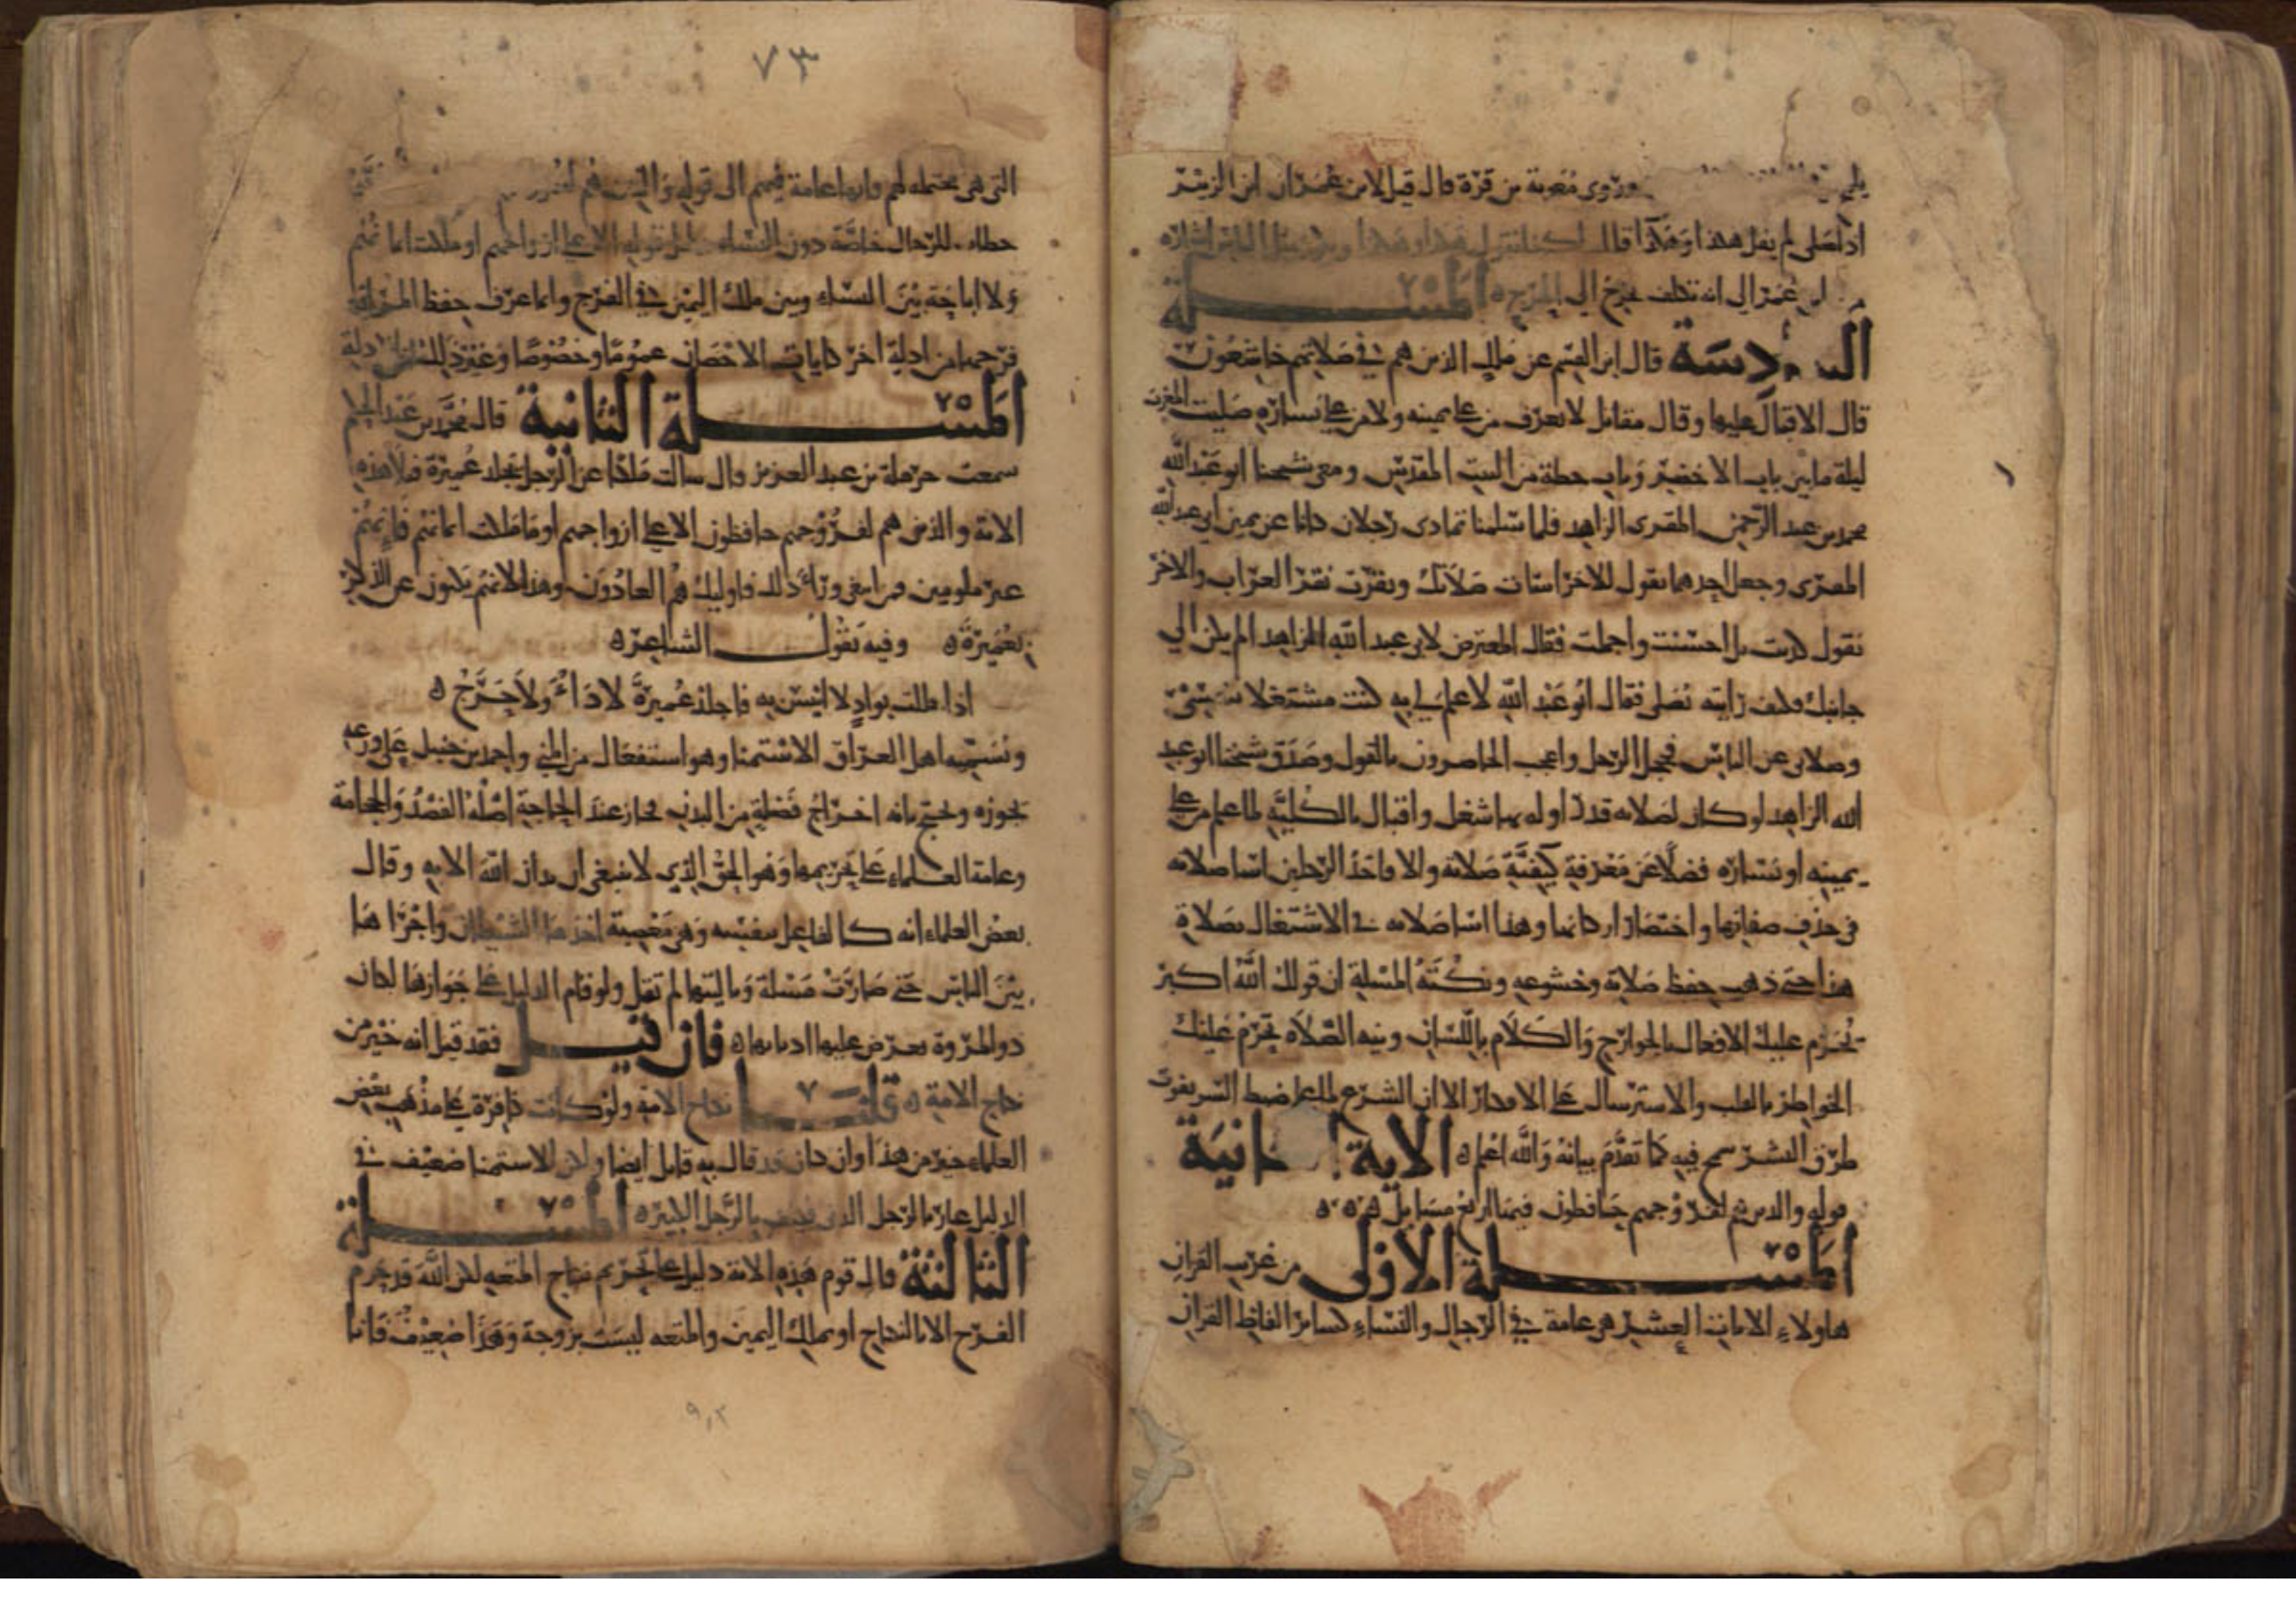 وروى معوية بن قرة قال قيل لابن عمر ان ابن الزبير
اذا صلى لم يقل هكذا وهكذا قال لكنا نقول هكذا وهكذا
ابن عمر الى انه تكلف يخرج الى الحرج ه المسلة
السادسة قال ابن القسم عن ملك الذين هم في صلاتهم خاشعون
قال الاقبال عليها وقال مقاتل لا يعرف من على يمينه ولا من على يساره صليت المغرب
ليلة ما بين باب الاخضر وباب حطة من البيت المقدس ومعي شيخنا ابو عبد الله
محمد بن عبد الرحمن المقرى الزاهد فلما سلمنا تمادى رجلان كانا عن يمين ابي عبد الله
المغربي وجعل احدهما يقول للاخر اسات صلاتك ونقرت نقر الغراب والاخر
يقول كذبت بل احسنت واجملت فقال المعترض لابي عبد الله الزاهد الم يكن الى
جانبك فكيف رايته يصلي فقال ابو عبد الله لا علم لي به كنت مشتغلا بنفسي
وصلاتي عن الناس فخجل الرجل واعجب الحاضرون بالقول وصدق شيخنا ابو عبد
الله الزاهد لو كان لصلاته قدر او له بها شغل واقبال بالكلية لما علم من على
يمينه او يساره فضلا عن معرفة كيفية صلاته والا فاحد الرجلين اسا صلاته
في حذف صفاتها واختصار اركانها وهذا اسا صلاته في الاشتغال بصلاة
هذا حتى ذهب حفظ صلاته وخشوعه ونكتة المسلة ان قولك الله اكبر
تحرم عليك الافعال بالجوارح والكلام باللسان ونية الصلاة تحرم عليك
الخواطر بالقلب والاسترسال على الافكار الا ان الشرع لما علم ضبط السر يفوت
طوق البشر سمح فيه كما تقدم بيانه والله اعلم ه الاية الثانية
قوله والذين هم لفروجهم حافظون فيها اربع مسايل ه ه ه
المسلة الاولى من غريب القران
هاولاء الايات العشر هي عامة في الرجال والنساء كساير الفاظ القران
٧٣
التي هي محتملة لهم فانها عامة فيهم الا قوله والذين هم لفروجهم
خطاب للرجال خاصة دون النساء بدليل قوله الا على ازواجهم او ما ملكت ايمانهم
ولا اباحة بين النساء وبين ملك اليمين في الفرج وانما عرف حفظ المراة
فرجها من ادلة اخر كايات الاحصان عموما وخصوصا وغير ذلك من الادلة
المسلة الثانية قال محمد بن عبد الحكم
سمعت حرملة بن عبد العزيز قال سالت مالكا عن الرجل يجلد عميرة فتلا هذه
الاية والذين هم لفروجهم حافظون الا على ازواجهم او ما ملكت ايمانهم فانهم
غير ملومين فمن ابتغى ورا ذلك فاوليك هم العادون وهذا لانهم يكنون عن الذكر
بعميرة ه وفيه يقول الشاعر ه
اذا حللت بواد لا انيس به فاجلد عميرة لا داء ولا حرج ه
ونسميه اهل العراق الاستمنا وهو استفعال من المني واحمد بن حنبل على ورعه
يجوزه ويحتج بانه اخراج فضلة من البدن فجاز عند الحاجة اصله الفصد والحجامة
وعامة العلماء على تحريمها وهو الحق الذي لا ينبغي ان يدان الله الا به وقال
بعض العلماء انه كالفاعل بنفسه وهي معصية احدثها الشيطان واجراها
بين الناس حتى صارت مسلة وياليتها لم تقل ولو قام الدليل على جوازها لكان
ذو المروة يعرض عليها لدناتها ه فان قيل فقد قيل انه خير من
نكاح الامة ه قلنا نكاح الامة ولو كانت كافرة على مذهب بعض
العلماء خير من هذا وان كان قد قال به قايل ايضا ولكن الاستمنا ضعيف في
الدليل عار بالرجل الدني فكيف بالرجل الكبير ه المسلة
الثالثة قال قوم هذه الاية دليل على تحريم نكاح المتعة لان الله قد حرم
الفرج الا بالنكاح او بملك اليمين والمتعة ليست بزوجة وهذا ضعيف فانا